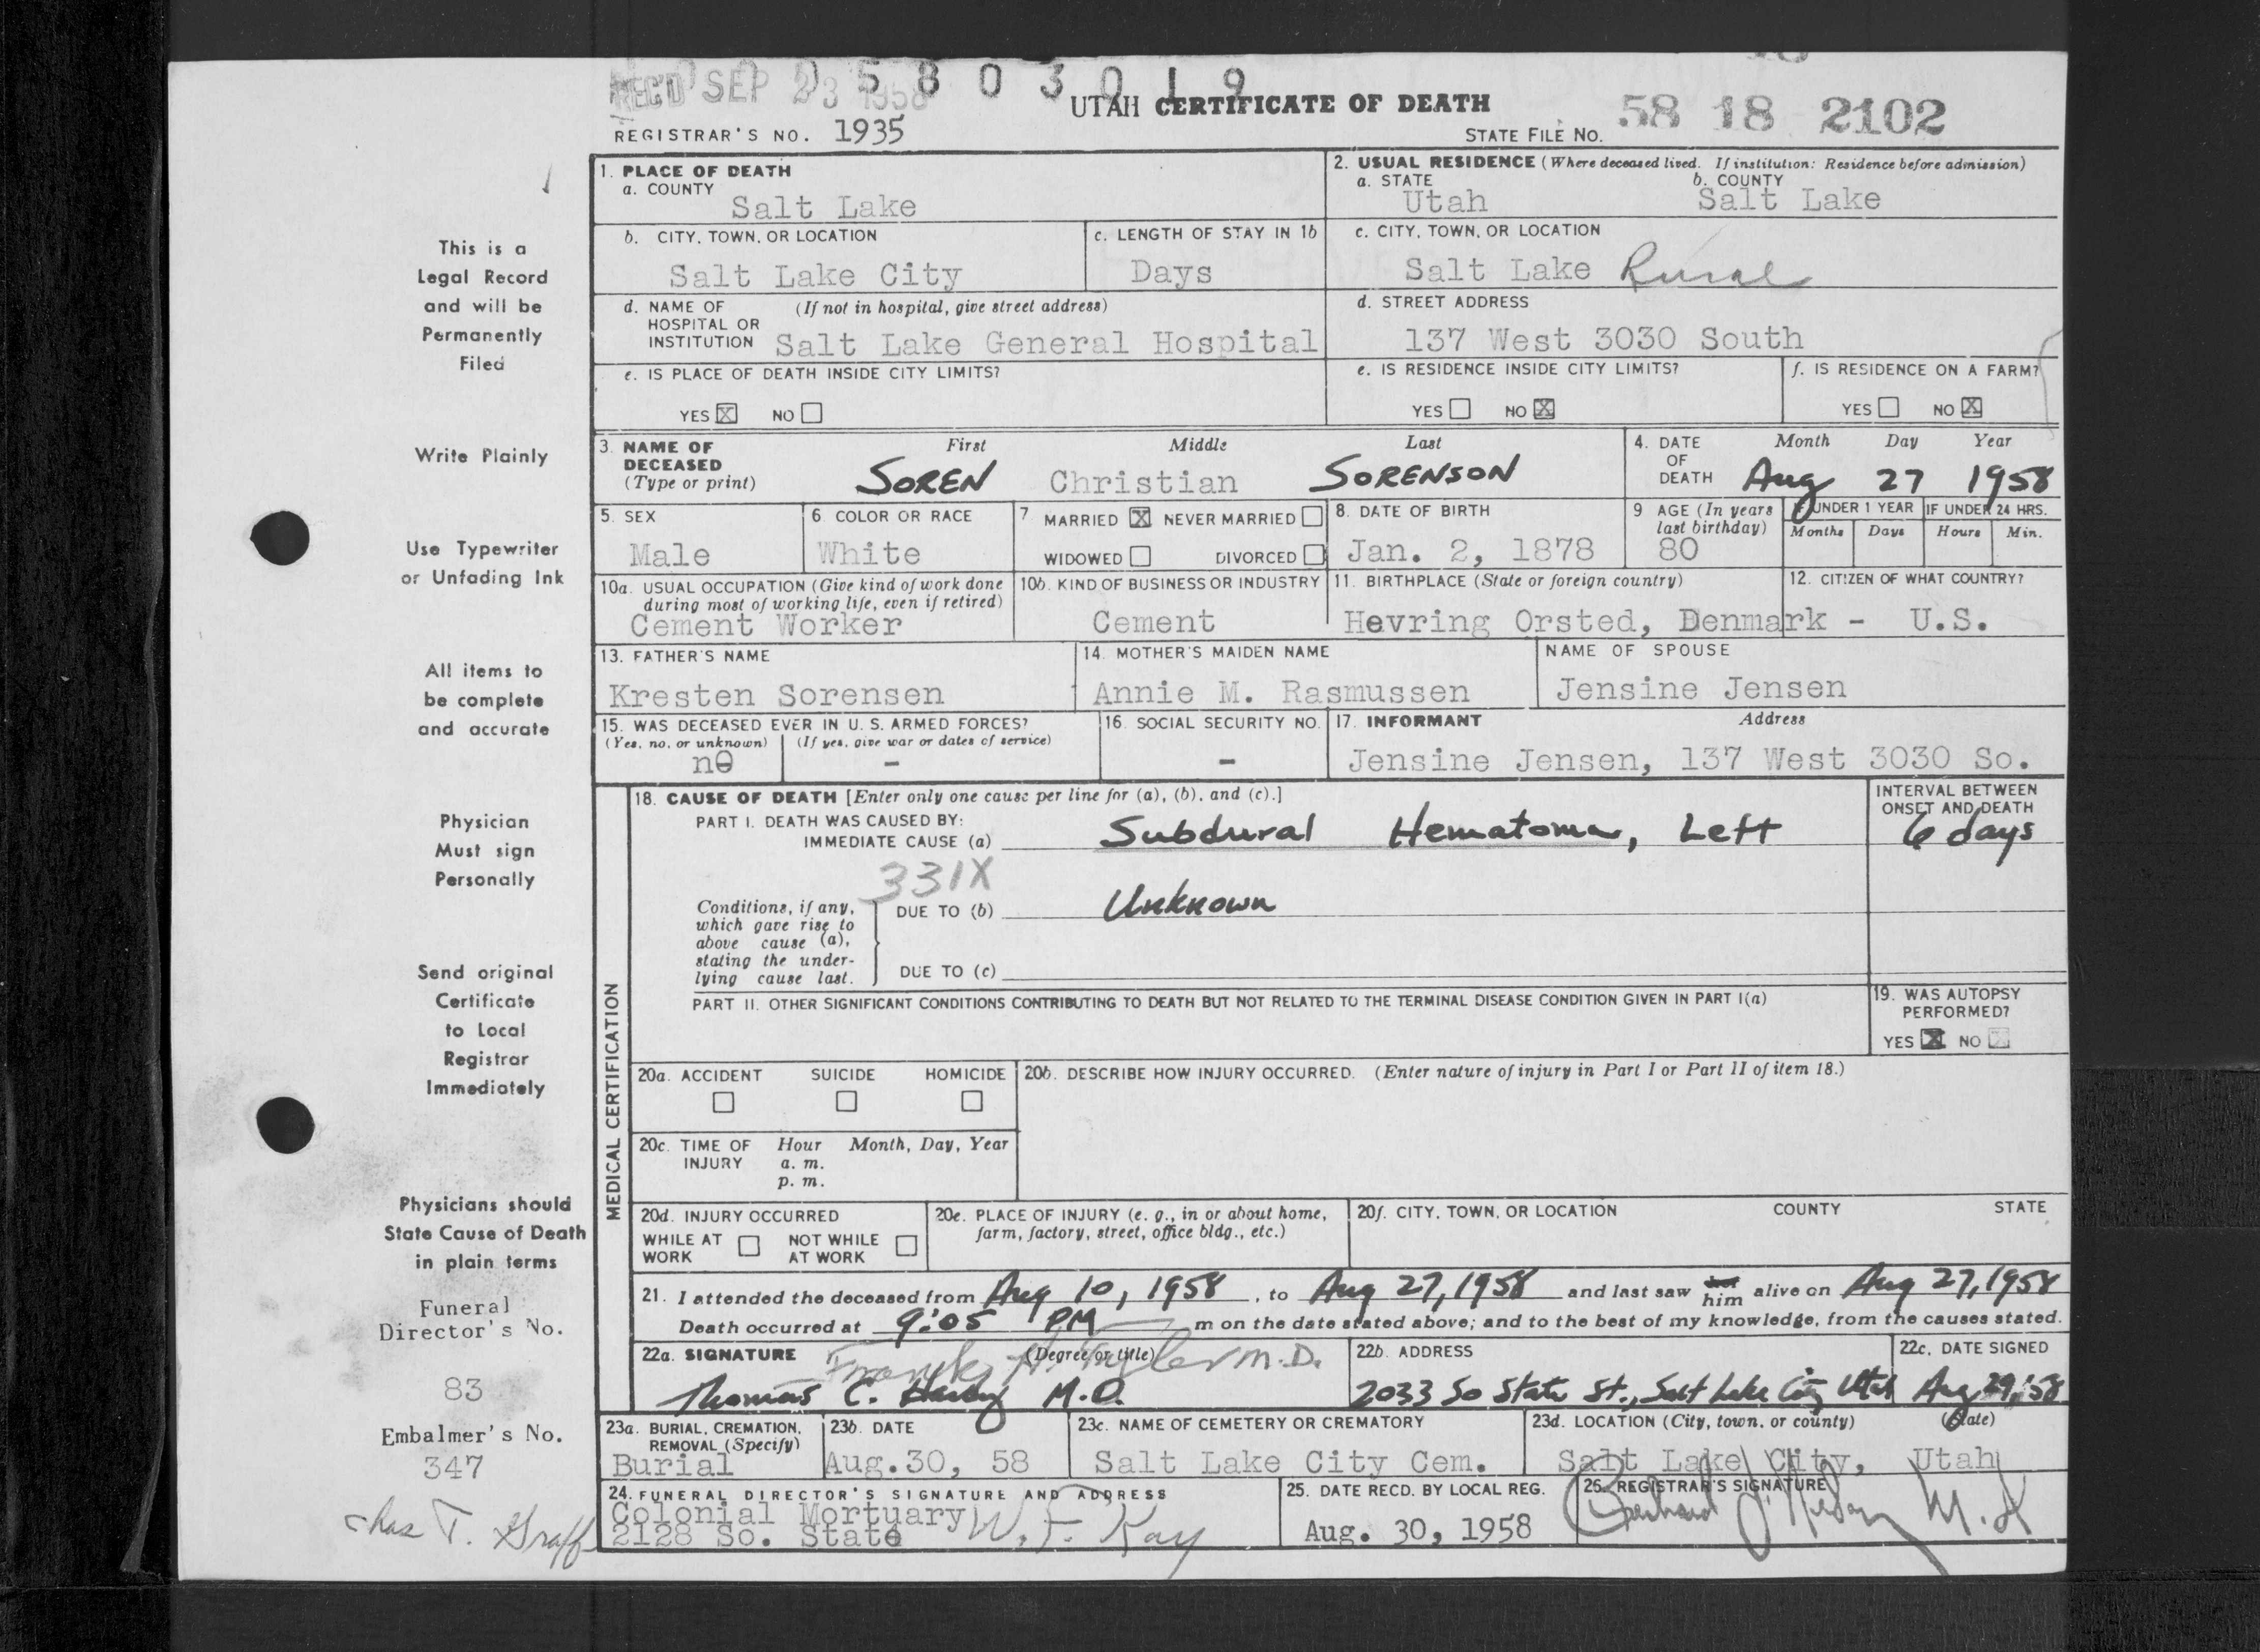 REC'D SEP 23 1958
5 8 0 3 0 1 9
UTAH CERTIFICATE OF DEATH
REGISTRAR'S NO. 1935
STATE FILE NO. 58 18 2102
1. PLACE OF DEATH
a. COUNTY
Salt Lake
2. USUAL RESIDENCE (Where deceased lived. If institution: Residence before admission)
a. STATE b. COUNTY
Utah Salt Lake
b. CITY, TOWN, OR LOCATION
Salt Lake City
c. LENGTH OF STAY IN 1b
Days
c. CITY, TOWN, OR LOCATION
Salt Lake Rural
d. NAME OF (If not in hospital, give street address)
HOSPITAL OR
INSTITUTION Salt Lake General Hospital
d. STREET ADDRESS
137 West 3030 South
e. IS PLACE OF DEATH INSIDE CITY LIMITS?
YES X NO
e. IS RESIDENCE INSIDE CITY LIMITS?
YES NO X
f. IS RESIDENCE ON A FARM?
YES NO X
3. NAME OF First Middle Last
DECEASED
(Type or print) SOREN Christian SORENSON
4. DATE Month Day Year
OF
DEATH Aug 27 1958
5. SEX
Male
6. COLOR OR RACE
White
7. MARRIED X NEVER MARRIED
WIDOWED DIVORCED
8. DATE OF BIRTH
Jan. 2, 1878
9. AGE (In years
last birthday)
80
IF UNDER 1 YEAR IF UNDER 24 HRS.
Months Days Hours Min.
10a. USUAL OCCUPATION (Give kind of work done
during most of working life, even if retired)
Cement Worker
10b. KIND OF BUSINESS OR INDUSTRY
Cement
11. BIRTHPLACE (State or foreign country)
Hevring Orsted, Denmark -
12. CITIZEN OF WHAT COUNTRY?
U.S.
13. FATHER'S NAME
Kresten Sorensen
14. MOTHER'S MAIDEN NAME
Annie M. Rasmussen
NAME OF SPOUSE
Jensine Jensen
15. WAS DECEASED EVER IN U. S. ARMED FORCES?
(Yes, no, or unknown) (If yes, give war or dates of service)
no -
16. SOCIAL SECURITY NO.
-
17. INFORMANT Address
Jensine Jensen, 137 West 3030 So.
MEDICAL CERTIFICATION
18. CAUSE OF DEATH [Enter only one cause per line for (a), (b), and (c).]
PART I. DEATH WAS CAUSED BY:
IMMEDIATE CAUSE (a) Subdural Hematoma, Left
INTERVAL BETWEEN
ONSET AND DEATH
6 days
331X
Conditions, if any,
which gave rise to
above cause (a),
stating the under-
lying cause last.
DUE TO (b) Unknown
DUE TO (c)
PART II. OTHER SIGNIFICANT CONDITIONS CONTRIBUTING TO DEATH BUT NOT RELATED TO THE TERMINAL DISEASE CONDITION GIVEN IN PART I(a)
19. WAS AUTOPSY
PERFORMED?
YES X NO
20a. ACCIDENT SUICIDE HOMICIDE
20b. DESCRIBE HOW INJURY OCCURRED. (Enter nature of injury in Part I or Part II of item 18.)
20c. TIME OF Hour Month, Day, Year
INJURY a. m.
p. m.
20d. INJURY OCCURRED
WHILE AT NOT WHILE
WORK AT WORK
20e. PLACE OF INJURY (e. g., in or about home,
farm, factory, street, office bldg., etc.)
20f. CITY, TOWN, OR LOCATION COUNTY STATE
21. I attended the deceased from Aug 10, 1958, to Aug 27, 1958 and last saw her him alive on Aug 27, 1958
Death occurred at 9:05 PM m on the date stated above; and to the best of my knowledge, from the causes stated.
22a. SIGNATURE (Degree or title)
Frank H. Tyler M.D.
Thomas C. Hardy M.D.
22b. ADDRESS
2033 So State St., Salt Lake City Utah
22c. DATE SIGNED
Aug 29, '58
23a. BURIAL, CREMATION,
REMOVAL (Specify)
Burial
23b. DATE
Aug. 30, 58
23c. NAME OF CEMETERY OR CREMATORY
Salt Lake City Cem.
23d. LOCATION (City, town, or county) (State)
Salt Lake City, Utah
24. FUNERAL DIRECTOR'S SIGNATURE AND ADDRESS
Colonial Mortuary
2128 So. State W. F. Kay
25. DATE RECD. BY LOCAL REG.
Aug. 30, 1958
26. REGISTRAR'S SIGNATURE
This is a
Legal Record
and will be
Permanently
Filed
Write Plainly
Use Typewriter
or Unfading Ink
All items to
be complete
and accurate
Physician
Must sign
Personally
Send original
Certificate
to Local
Registrar
Immediately
Physicians should
State Cause of Death
in plain terms
Funeral
Director's No.
83
Embalmer's No.
347
Chas T. Graff